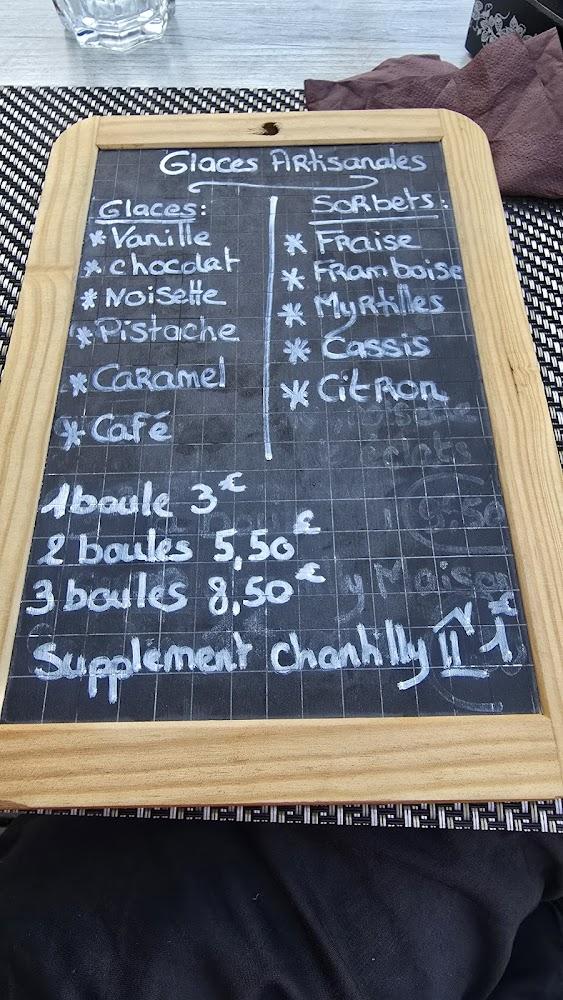 Glaces Artisanales
Glaces:
* Vanille
* chocolat
* Noisette
* Pistache
* Caramel
* Café
Sorbets:
* Fraise
* Framboise
* Myrtilles
* Cassis
* Citron
1 boule 3€
2 boules 5,50€
3 boules 8,50€
Supplement Chantilly 1€